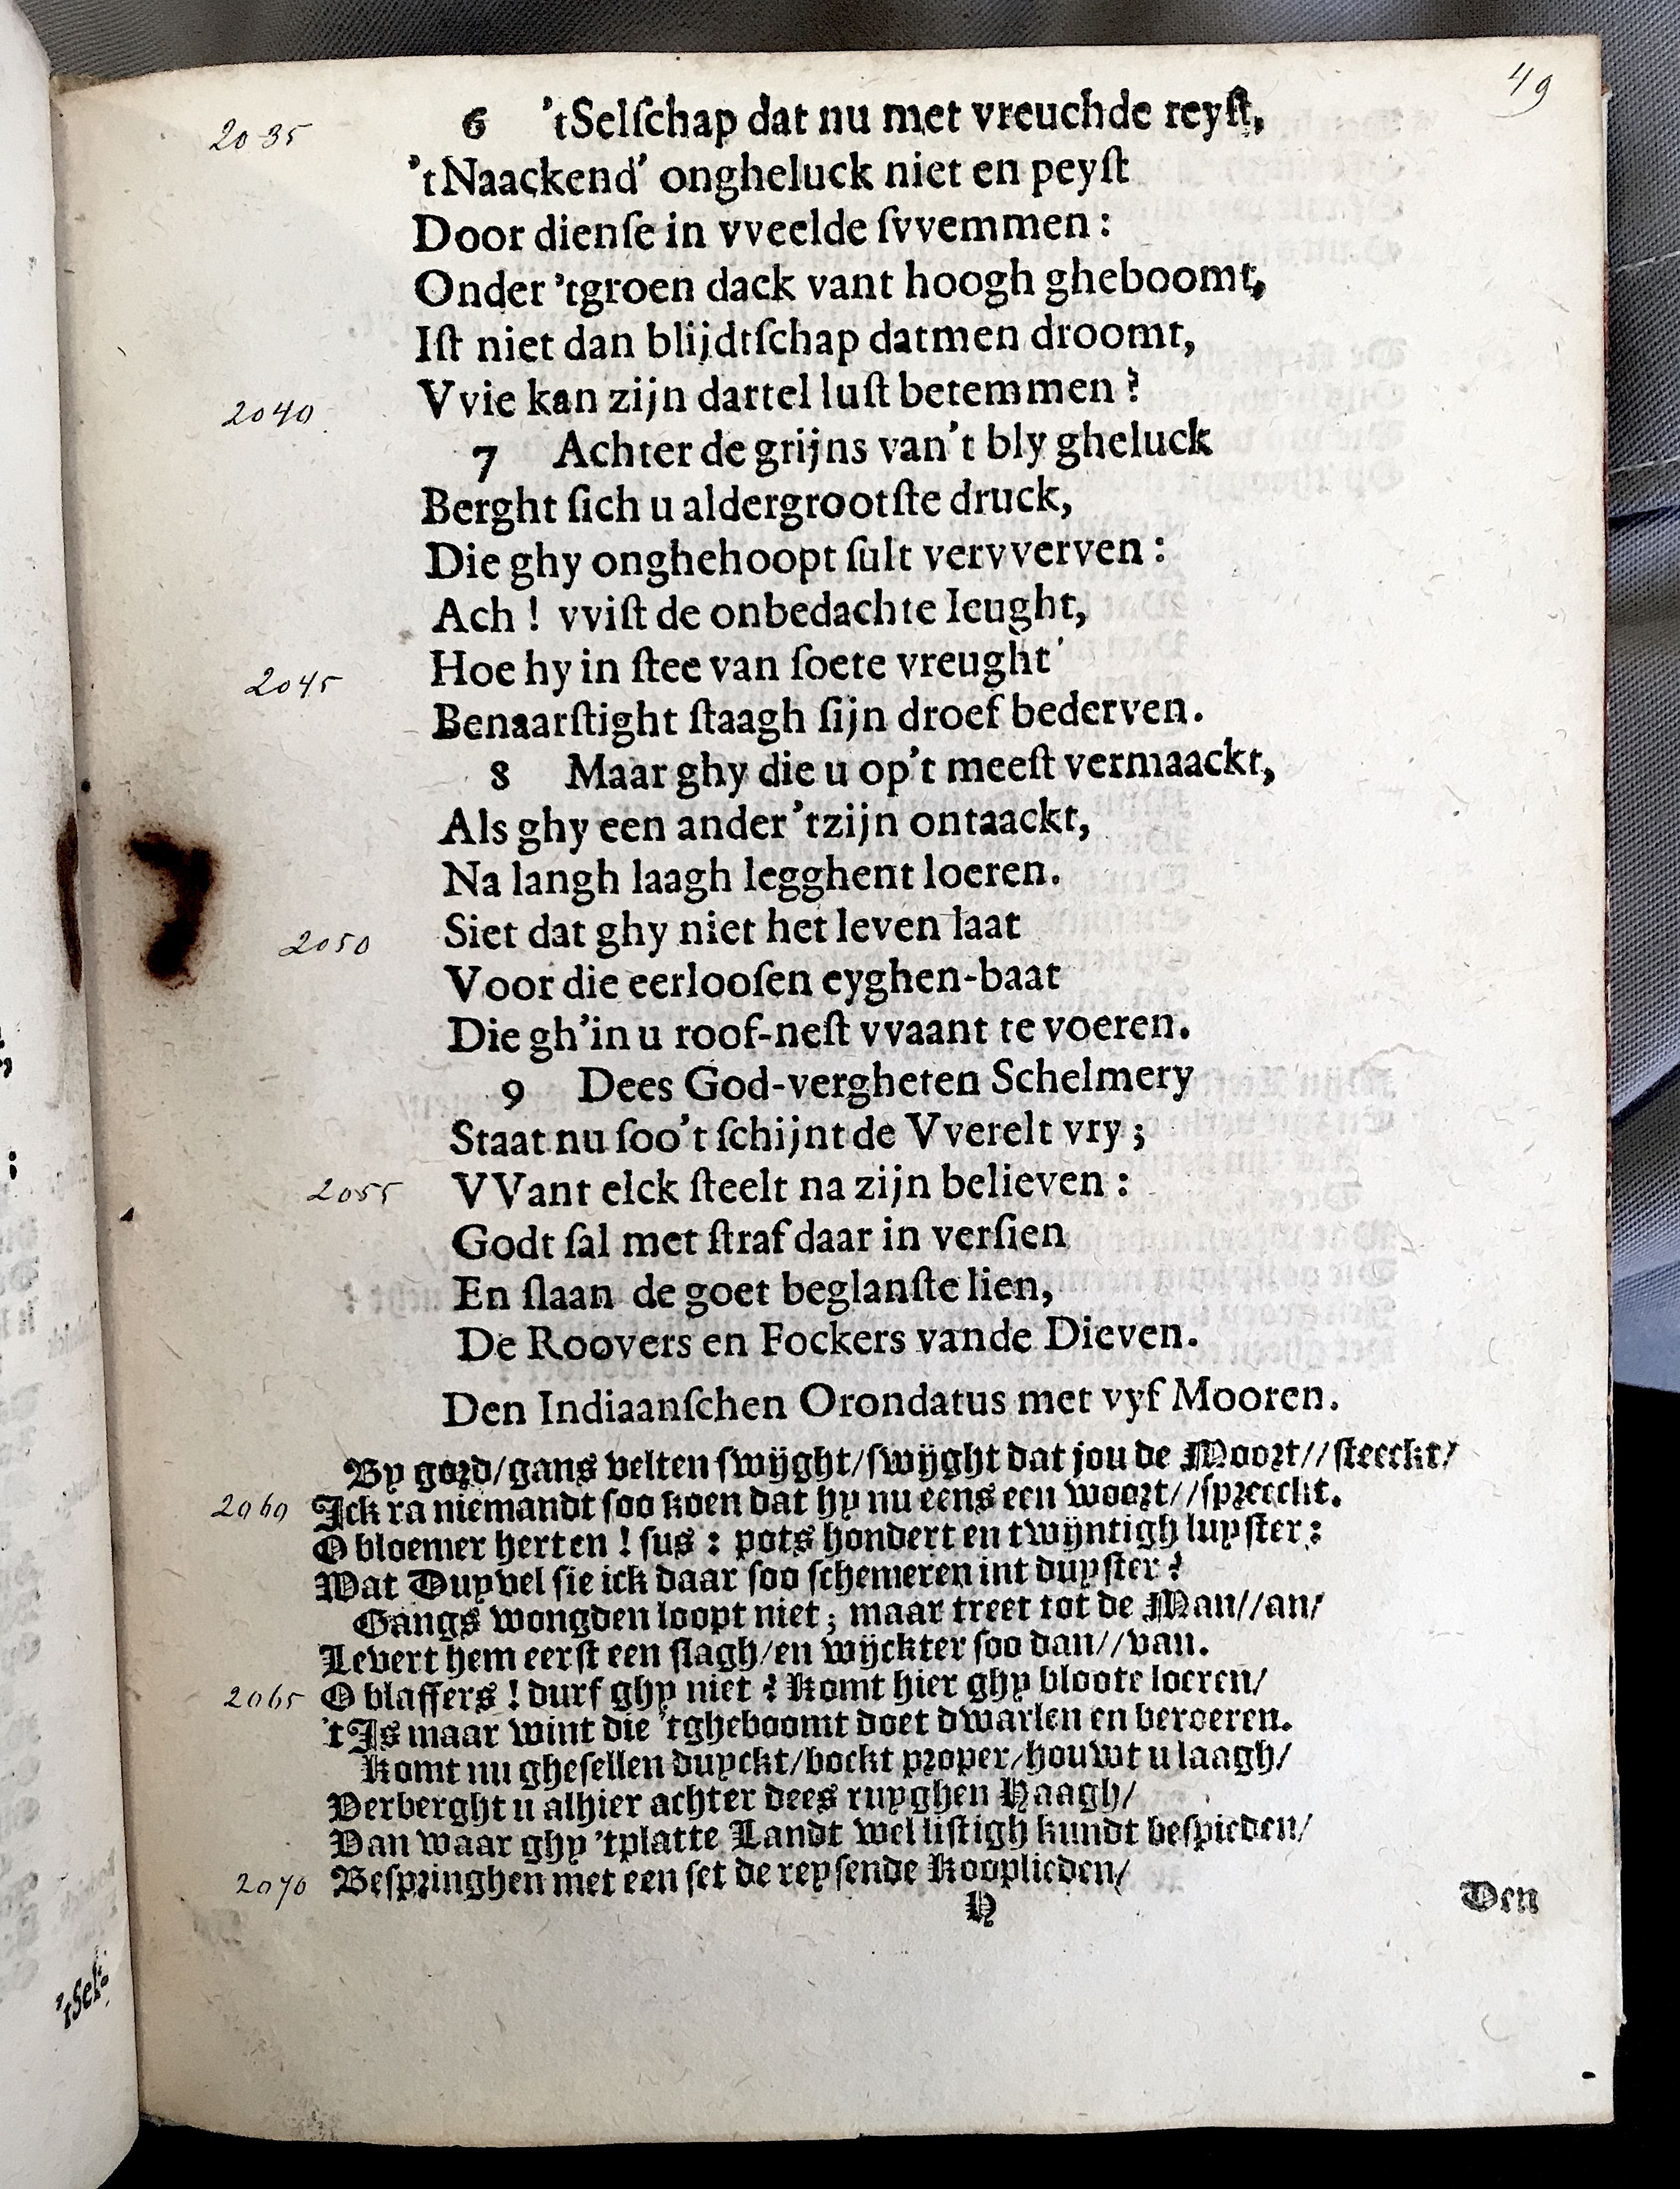 49
2035 6 'tSelſchap dat nu met vreuchde reyſt,
'tNaackend' ongheluck niet en peyſt
Door dienſe in vveelde ſvvemmen:
Onder 'tgroen dack vant hoogh gheboomt,
Iſt niet dan blijdtſchap datmen droomt,
2040 Vvie kan zijn dartel luſt betemmen?
7 Achter de grijns van't bly gheluck
Berght ſich u aldergrootſte druck,
Die ghy onghehoopt ſult vervverven:
Ach! vviſt de onbedachte Ieught,
2045 Hoe hy in ſtee van ſoete vreught
Benaarſtight ſtaagh ſijn droef bederven.
8 Maar ghy die u op't meeſt vermaackt,
Als ghy een ander 'tzijn ontaackt,
Na langh laagh legghent loeren.
2050 Siet dat ghy niet het leven laat
Voor die eerlooſen eyghen-baat
Die gh'in u roof-neſt vvaant te voeren.
9 Dees God-vergheten Schelmery
Staat nu ſoo't ſchijnt de Vverelt vry;
2055 VVant elck ſteelt na zijn believen:
Godt ſal met ſtraf daar in verſien
En ſlaan de goet beglanſte lien,
De Roovers en Fockers vande Dieven.
Den Indiaanſchen Orondatus met vyf Mooren.
By gord/gans velten ſwijght/ſwijght dat jou de Moort//ſteeckt/
2060 Ick ra niemandt ſoo koen dat hy nu eens een woort//ſpreeckt.
O bloemer herten! ſus: pots hondert en twijntigh luyſter:
Wat Duyvel ſie ick daar ſoo ſchemeren int duyſter?
Gangs wongden loopt niet; maar treet tot de Man//an/
Levert hem eerſt een ſlagh/en wijckter ſoo dan//van.
2065 O blaffers! durf ghy niet? Komt hier ghy bloote loeren/
'tIs maar wint die 'tgheboomt doet dwarlen en beroeren.
Komt nu gheſellen duyckt/bockt proper/houwt u laagh/
Verberght u alhier achter dees ruyghen Haagh/
Van waar ghy 'tplatte Landt wel liſtigh kundt beſpieden/
2070 Beſpringhen met een ſet de reyſende Kooplieden/
H Den
'tSel-